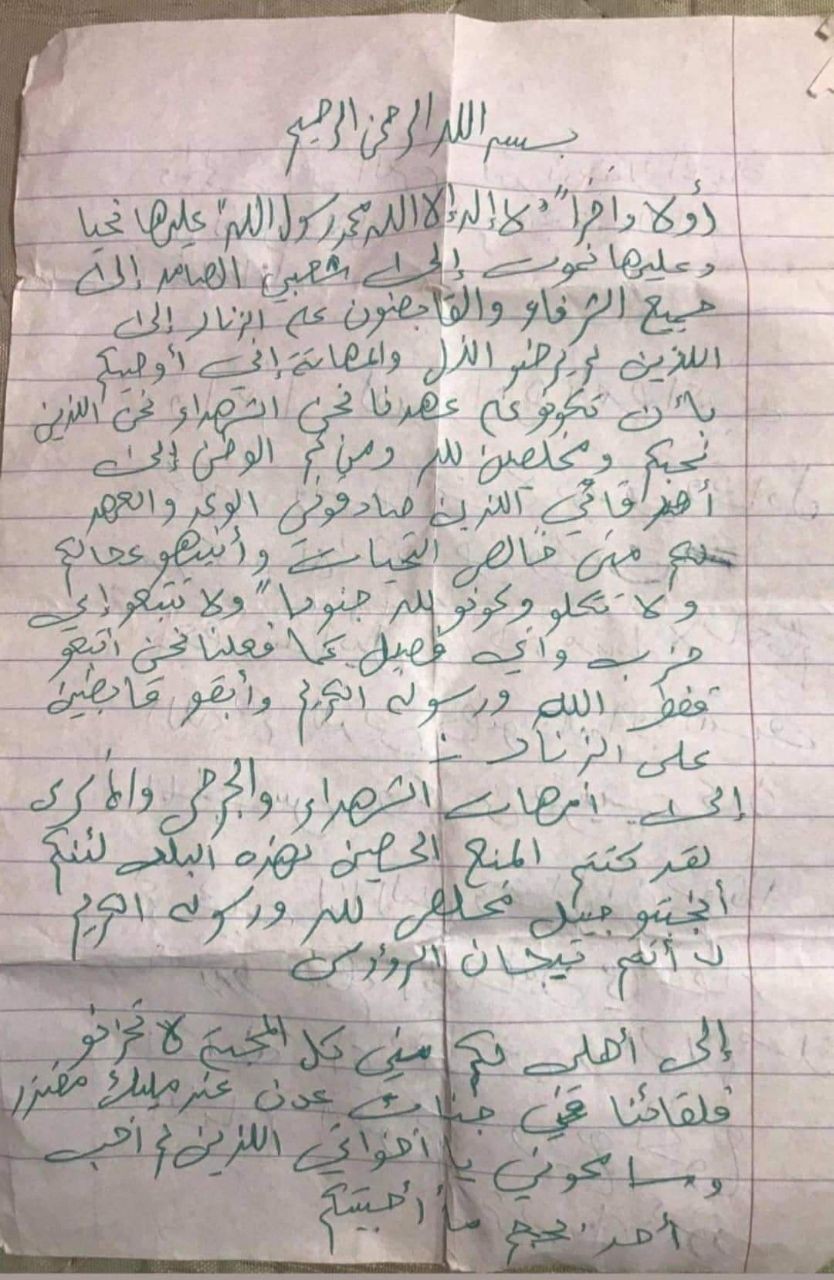 بسم الله الرحمن الرحيم
أولا وأخرا" "لا إله إلا الله محمد رسول الله" عليها نحيا
وعليها نموت إلى شعبي الصامد إلى
جميع الشرفاء والقابضون على الزناد إلى
اللذين لم يرضو الذل والمهانة إني أوصيكم
بأن تكونو على عهدنا نحن الشهداء نحن اللذين
نحبكم ومخلصين لله ومن ثم الوطن إلى
أصدقائي اللذين صادقوني الوعد والعهد
لكم مني خالص التحيات وأنتبهو على حالكم
ولا تكلو وكونو لله جنودا" ولا تتبعو إي
حزب وأي فصيل كما فعلنا نحن اتبعو
فقط الله ورسوله الكريم وأبقو قابضين
على الزناد :
إلى أمهات الشهداء والجرحى والأسرى
لقد كنتم المنبع الحصين لهذه البلد لئنكم
أنجبتو جيل مخلص لله ورسوله الكريم
أنتم تيجان الرؤوس
إلى أهلي لكم مني كل المحبة لا تحزنو
فلقائنا في جنات عدن عند مليك مقتدر
وسامحوني يا أخواتي اللذين لم أحب
أحد بحجم ما أحببتكم